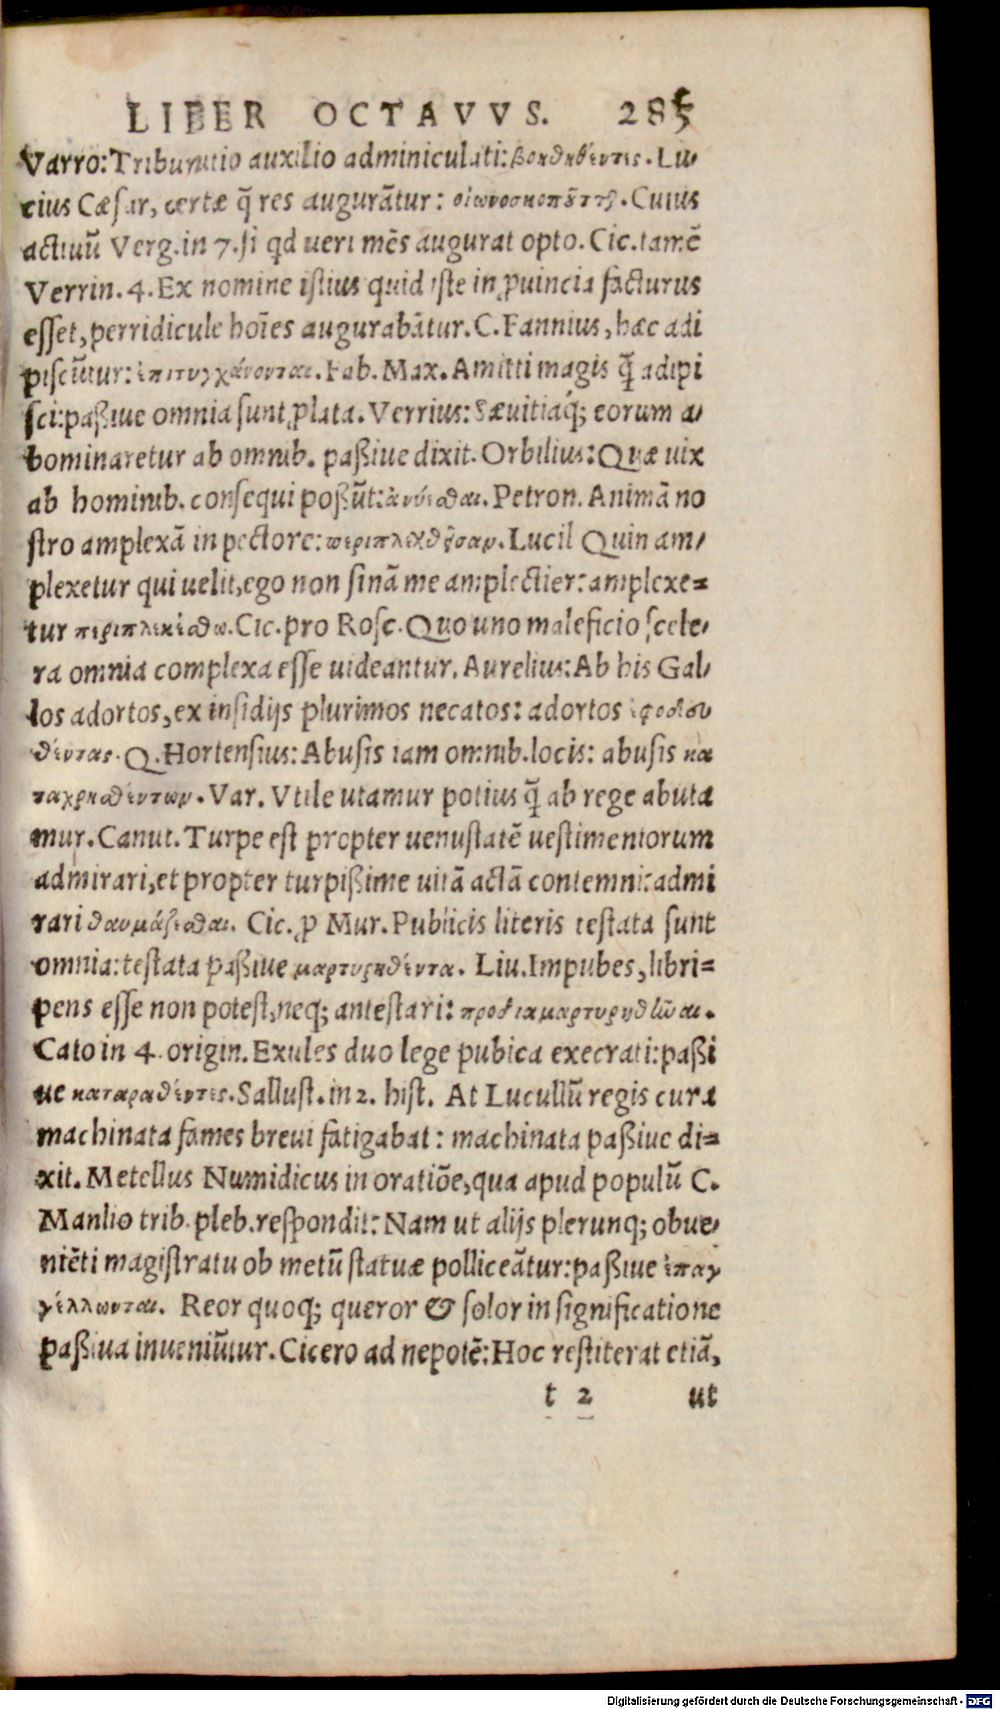 LIBER OCTAVVS. 285
Varro: Tribunitio auxilio adminiculati: βοηθηθέντες. Lu-
cius Cæsar, certæ q̃ res augurãtur: οἰωνοσκοποῦνται. Cuius
actiuũ Verg. in 7. si qd ueri mẽs augurat opto. Cic. tamẽ
Verrin. 4. Ex nomine istius quid iste in ꝓuincia facturus
esset, perridicule hoĩes augurabãtur. C. Fannius, hæc adi
piscũtur: ἐπιτυγχάνονται. Fab. Max. Amitti magis q̃̃ adipi
sci: paßiue omnia sunt ꝓlata. Verrius: Sæuitiaq́; eorum a-
bominaretur ab omnib. paßiue dixit. Orbilius: Quæ uix
ab hominib. consequi poßũt: ἀνύεσθαι. Petron. Animã no
stro amplexã in pectore: περιπλεχθῆσαν. Lucil Quin am-
plexetur qui uelit, ego non sinã me amplectier: amplexe=
tur περιπλεκέσθω. Cic. pro Rosc. Quo uno maleficio scele-
ra omnia complexa esse uideantur. Aurelius: Ab his Gal-
los adortos, ex insidijs plurimos necatos: adortos ἐφοδευ
θέντας. Q. Hortensius: Abusis iam omnib. locis: abusis κα
ταχρησθέντων. Var. Vtile utamur potius q̃̃ ab rege abuta
mur. Canut. Turpe est propter uenustatẽ uestimentorum
admirari, et propter turpißime uitã actã contemni: admi
rari θαυμάζεσθαι. Cic. ꝓ Mur. Publicis literis testata sunt
omnia: testata paßiue μαρτυρηθέντα. Liu. Impubes, libri=
pens esse non potest, neq; antestari: προδιαμαρτυρηθῶαι.
Cato in 4. origin. Exules duo lege pubica execrati: paßi
ue καταραθέντες. Sallust. in 2. hist. At Lucullũ regis cura
machinata fames breui fatigabat: machinata paßiue di=
xit. Metellus Numidicus in oratiõe, qua apud populũ C.
Manlio trib. pleb. respondit: Nam ut alijs plerunq; obue-
niẽti magistratu ob metũ statuæ polliceãtur: paßiue ἐπαγ
γέλλωνται. Reor quoq; queror & solor in significatione
paßiua inueniũtur. Cicero ad nepotẽ: Hoc restiterat etiã,
t 2 ut
Digitalisierung gefördert durch die Deutsche Forschungsgemeinschaft - DFG